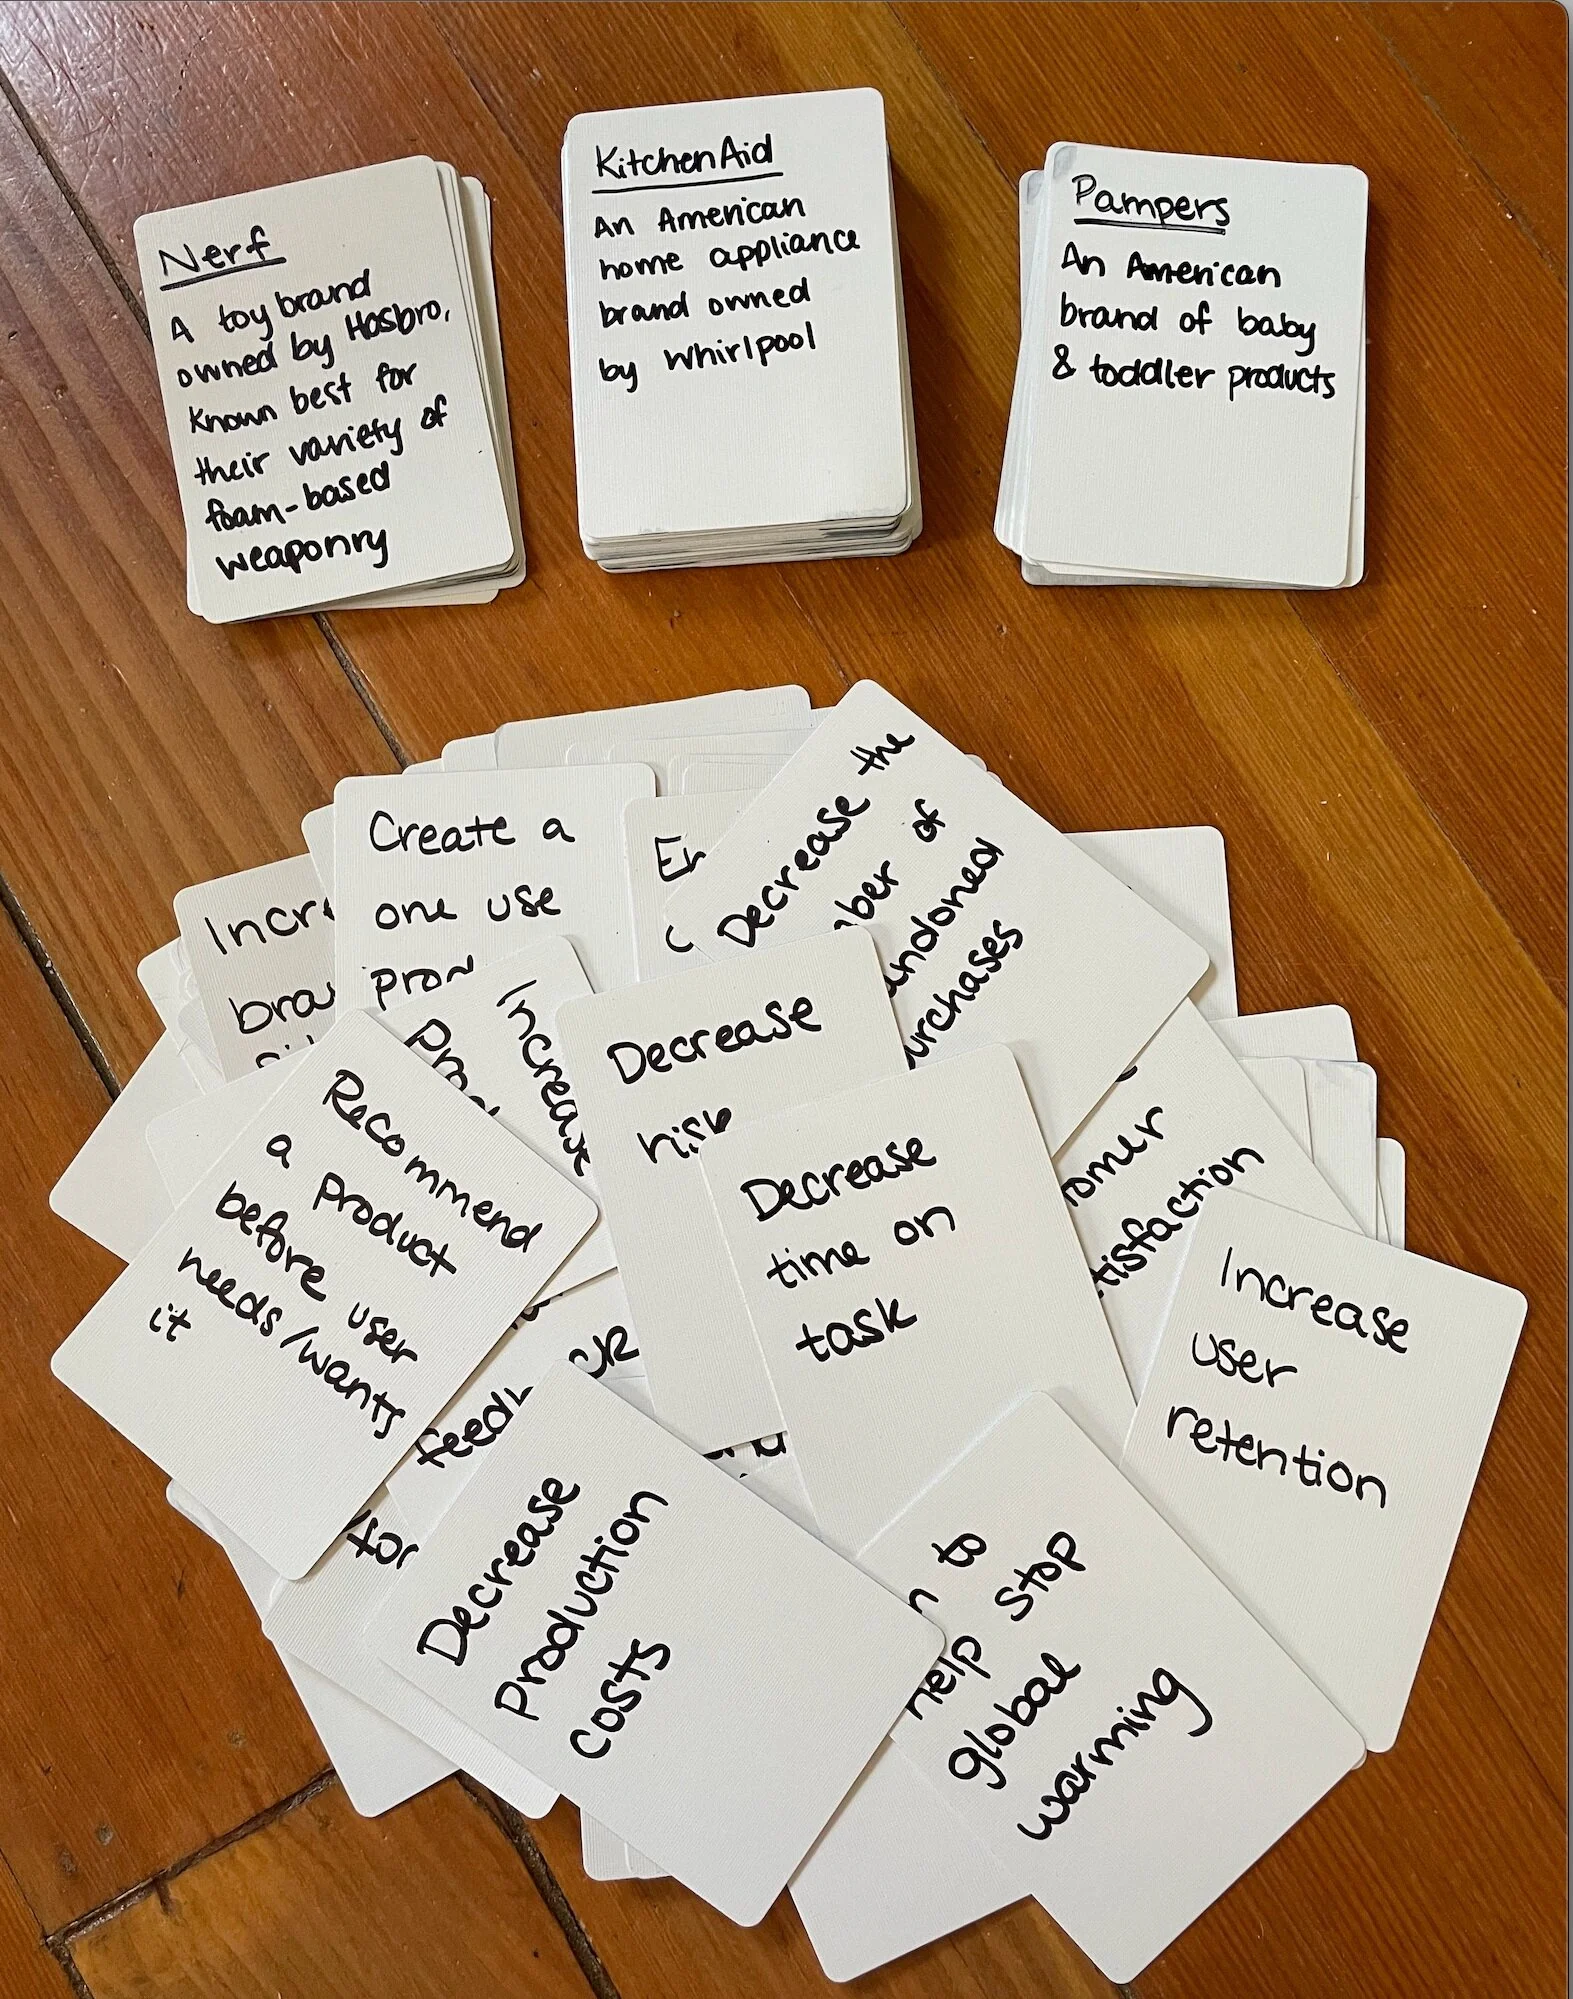 Nerf
A toy brand
owned by Hasbro,
known best for
their variety of
foam-based
weaponry
KitchenAid
An American
home appliance
brand owned
by Whirlpool
Pampers
An American
brand of baby
& toddler products
Create a
one use
Decrease the
of
Increase
Decrease
Recommend
a product
before user
needs/wants
it
Decrease
time on
task
Increase
user
retention
for
Decrease
production
costs
to
help stop
global
warming